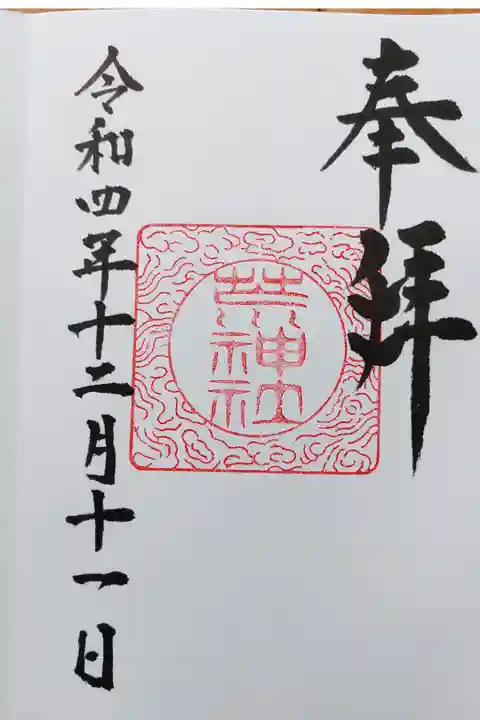 奉拝
神社
令和四年十二月十一日